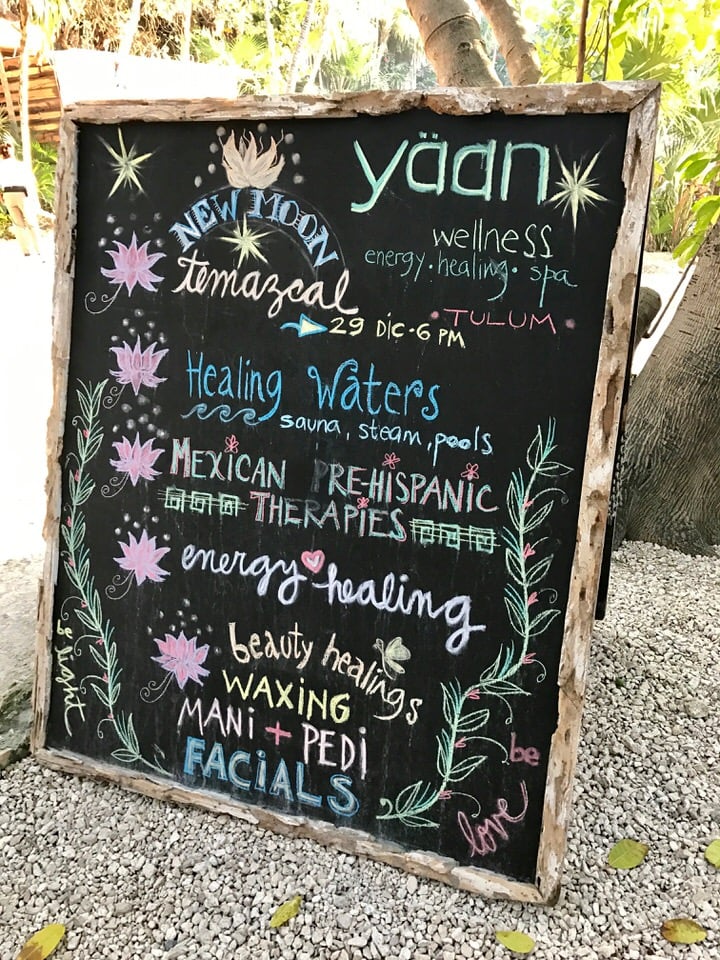 yäan
wellness
energy · healing · spa
· TULUM ·
NEW MOON
temazcal
29 DIC · 6 PM
Healing Waters
sauna, steam, pools
MEXICAN PRE-HISPANIC
THERAPIES
energy healing
beauty healings
WAXING
MANi + PEDi
FACiALS
& light
be
love